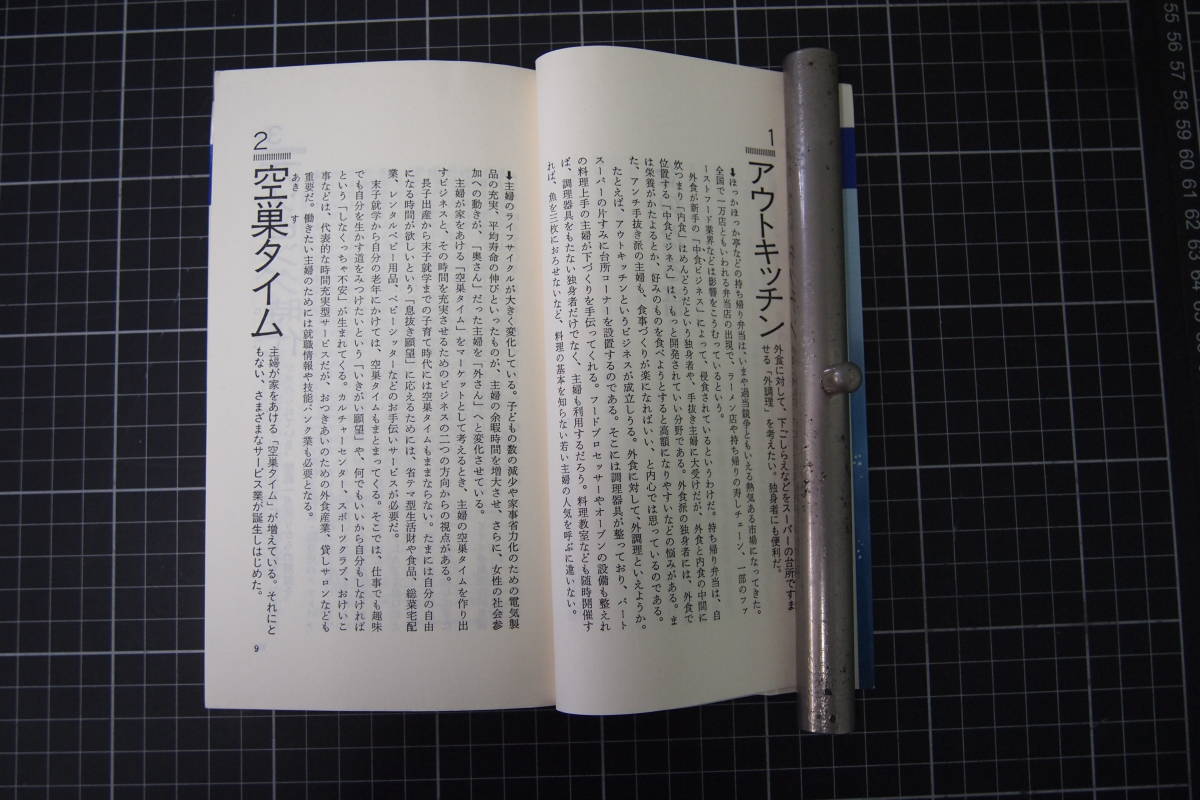 1
アウトキッチン
外食に対して、下ごしらえなどをスーパーの台所ですま
せる「外調理」を考えたい。独身者にも便利だ。
↓ほっかほっか亭などの持ち帰り弁当は、いまや過当競争ともいえる熱気ある市場になってきた。
全国で一万店ともいわれる弁当店の出現で、ラーメン店や持ち帰りの寿しチェーン、一部のファ
ーストフード業界などは影響をこうむっているという。
外食が新手の「中食ビジネス」によって、侵食されているというわけだ。持ち帰り弁当は、自
炊つまり「内食」はめんどうだという独身者や、手抜き主婦に大受けだが、外食と内食の中間に
位置する「中食ビジネス」は、もっと開発されていい分野である。外食派の独身者には、外食で
は栄養がかたよるとか、好みのものを食べようとすると高額になりやすいなどの悩みがある。ま
た、アンチ手抜き派の主婦も、食事づくりが楽になればいい、と内心では思っているのである。
たとえば、アウトキッチンというビジネスが成立しうる。外食に対して、外調理といえようか。
スーパーの片すみに台所コーナーを設置するのである。そこには調理器具が整っており、パート
の料理上手の主婦が下づくりを手伝ってくれる。フードプロセッサーやオーブンの設備も整えれ
ば、調理器具をもたない独身者だけでなく、主婦も利用するだろう。料理教室なども随時開催す
れば、魚を三枚におろせないなど、料理の基本を知らない若い主婦の人気を呼ぶに違いない。
2
空巣タイム
あき す
主婦が家をあける「空巣タイム」が増えている。それにと
もない、さまざまなサービス業が誕生しはじめた。
↓主婦のライフサイクルが大きく変化している。子どもの数の減少や家事省力化のための電気製
品の充実、平均寿命の伸びといったものが、主婦の余暇時間を増大させ、さらに、女性の社会参
加への動きが、「奥さん」だった主婦を「外さん」へと変化させている。
主婦が家をあける「空巣タイム」をマーケットとして考えるとき、主婦の空巣タイムを作り出
すビジネスと、その時間を充実させるためのビジネスの二つの方向からの視点がある。
長子出産から末子就学までの子育て時代には空巣タイムもままならない。たまには自分の自由
になる時間が欲しいという「息抜き願望」に応えるためには、省テマ型生活財や食品、総菜宅配
業、レンタルベビー用品、ベビーシッターなどのお手伝いサービスが必要だ。
末子就学から自分の老年にかけては、空巣タイムもまとまってくる。そこでは、仕事でも趣味
でも自分を生かす道をみつけたいという「いきがい願望」や、何でもいいから自分もしなければ
という「しなくっちゃ不安」が生まれてくる。カルチャーセンター、スポーツクラブ、おけいこ
事などは、代表的な時間充実型サービスだが、おつきあいのための外食産業、貸しサロンなども
重要だ。働きたい主婦のためには就職情報や技能バンク業も必要となる。
9
55
56
57
58
59
60
61
62
63